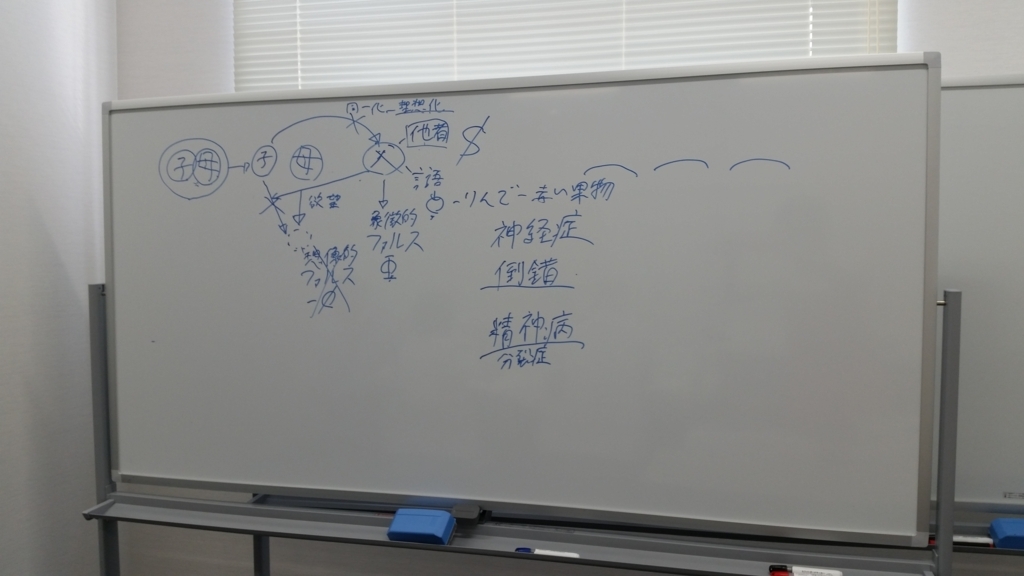 同一化 理想化
子 母 → 子 母 父 他者 $
欲望
言語
φ -りんご-赤い果物
象徴的
ファルス
Φ
想像的
ファルス
-φ
神経症
倒錯
精神病
分裂症